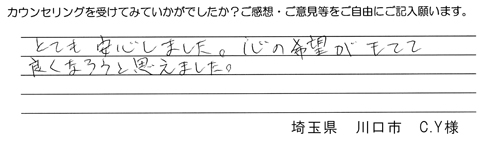 カウンセリングを受けてみていかがでしたか？ご感想・ご意見等をご自由にご記入願います。
とても安心しました。心の希望がもてて
良くなろうと思えました。
埼玉県　川口市　C.Y様